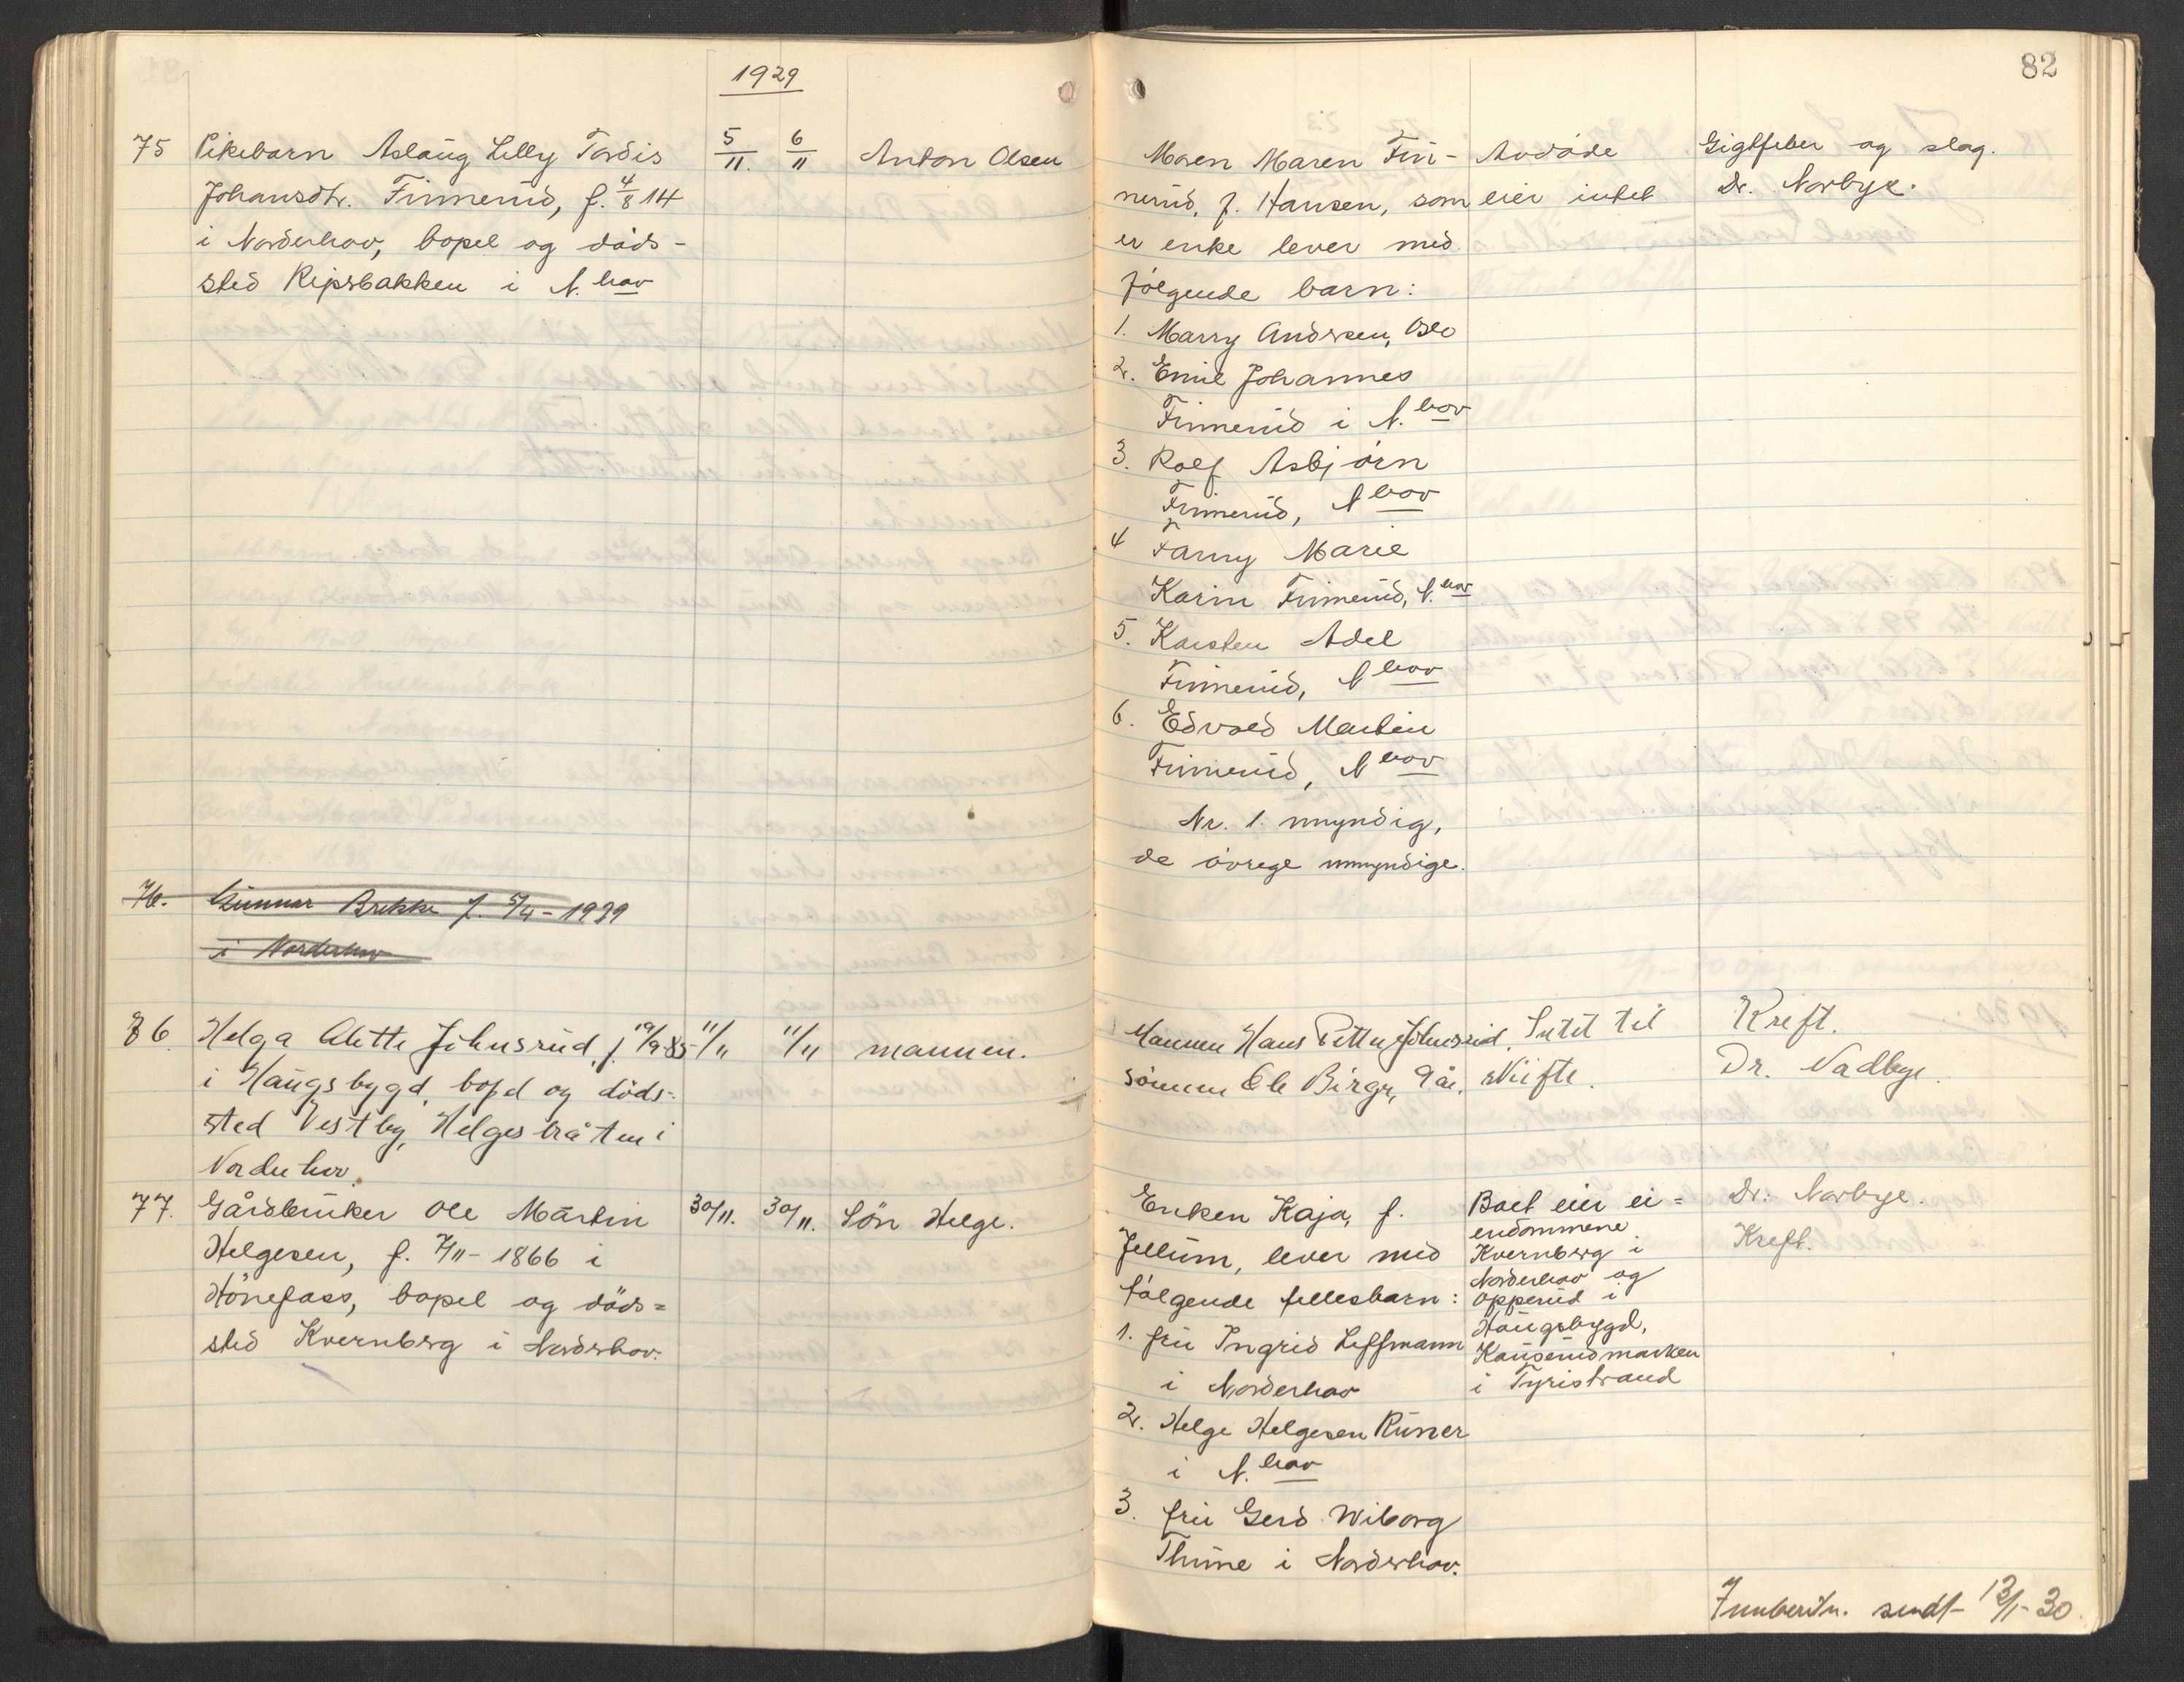 82
1929
75 Pikebarn Aslaug Lilly Tordis
Johansdtr. Finnerud, f. 4/8 14
i Norderhov, bopel og döds-
sted Ripsbakken i N.hov
5/11. 6/11 Anton Olsen
Moren Maren Fin-
nerud, f. Hansen, som
er enke lever med
følgende barn:
1. Marry Andersen, Oslo
2. Emil Johannes
Finnerud i N.hov
3. Rolf Asbjörn
Finnerud, N hov
4 Fanny Marie
Karin Finnerud, N.hov
5. Karsten Adel
Finnerud, N hov
6. Edvard Martin
Finnerud, N hov
Nr. 1. myndig,
de övrege umyndige.
Avdöde
eier intet
Gigtfeber og slag.
Dr. Norbye.
76. Gunnar Brekke f. 5/4-1929
i Norderhov
76. Helga Alette Johnsrud, f. 19/9-85
i Haugsbygd, bopel og döds-
sted Vestby, Helgesbråten i
Norderhov.
11/11 11/11 mannen.
Mannen Hans Petter Johnsrud,
sönnen Ole Birger, 9 år.
Intet til
skifte.
Kreft.
Dr. Nadbye.
77. Gårdbruker Ole Martin
Helgesen, f. 7/11-1866 i
Hönefoss, bopel og döds=
sted Kvernberg i Norderhov.
30/11. 30/11. Sön Helge.
Enken Kaja, f.
Jellum, lever med
følgende fellesbarn:
1. fru Ingrid Leffmann
i Norderhov
2. Helge Helgesen Ruser
i N.hov
3. fru Gerd Wiborg
Thune i Norderhov.
Boet eier ei=
endommene
Kvernberg i
Norderhov og
Opperud i
Haugsbygd,
Kauserudmarken
i Tyristrand
Dr. Norbye.
Kreft.
Innberetn. sendt 13/1-30.